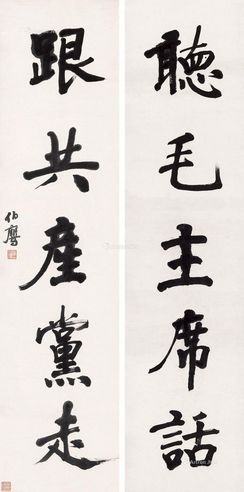 聽毛主席話
跟共產黨走
伯鷹